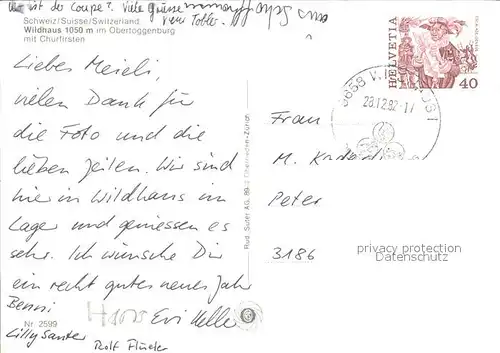 ist der Coupe? Viele Grüsse
vom Tobler.
Schweiz/Suisse/Switzerland
Wildhaus 1050 m im Obertoggenburg
mit Churfirsten
HELVETIA
40
28.12.82-17
Lieber Meieli,
vielen Dank für
die Foto und die
lieben Zeilen. Wir sind
hier in Wildhaus im
Lager und geniessen es
sehr. Ich wünsche Dir
ein recht gutes neues Jahr
Benni
Evi Kelle
Nr. 2599
Lilly Santer
Rolf
Rud. Suter AG. 89 Oberrieden-Zürich
Frau
M.
Peter
3186
privacy protection
Datenschutz